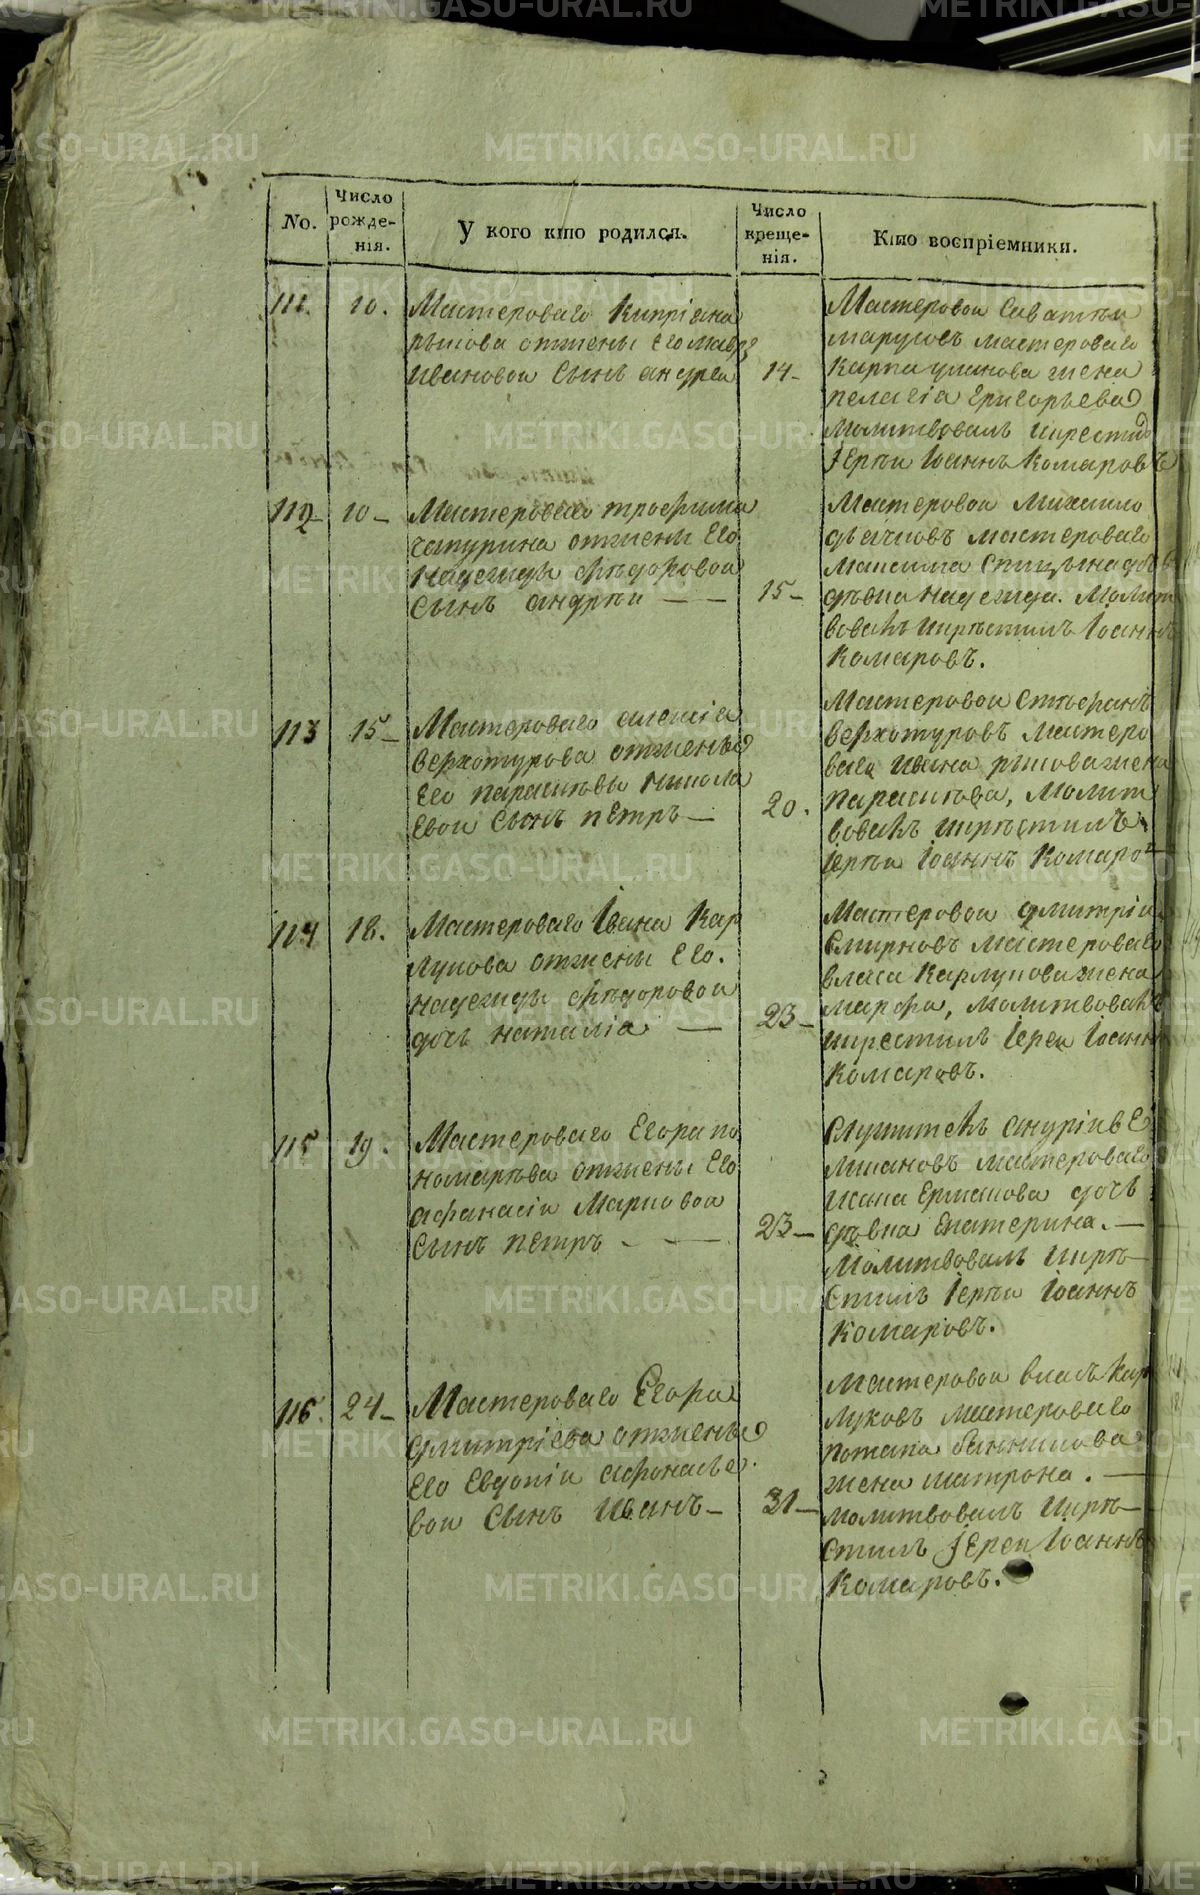 No.
Число рожде-нія.
У кого кто родился.
Число креще-нія.
Кто воспріемники.
111.
10.
Мастероваго Кипріана
рысова отжены Его мавр
ивановои Сынъ андреи
14-
Мастеровои Саватеи
марусовъ мастероваго
Карпа жена
пелагіа григорьева
Молитвовалъ икрестил
Іерѣи Іоаннъ Комаровъ
112
10-
Мастероваго трофима
чапурина отжены Его
Надежды фѣдоровои
Сынъ андрѣи — —
15-
Мастеровои Михаило
дьячковъ мастероваго
Максима Спицына дочь
дѣвка надежда. Молит
вовалъ икрѣстилъ Іоаннъ
Комаровъ.
113
15-
Мастероваго алексіа
верхотурова отжены
Его парасковьи никола
Евои Сынъ пётръ —
20.
Мастеровои стефанъ
верхотуровъ мастеро
ваго ивана рысова жена
парасковьа, молит
вовалъ икрѣстилъ
Іерѣи Іоаннъ Комаро
114
18.
Мастероваго Івана Кар
лукова отжены Его.
надежды фѣдоровои
дочь наталіа —
23-
Мастеровои дмитріи
Смирновъ мастероваго
власа Карлукова жена
марфа, молитвовалъ
икрестилъ Іереи Іоаннъ
Комаровъ.
115
19.
Мастероваго Егора по
номарѣва отжены Его
афанасіи Марковои
Сынъ пётръ — —
23-
Служитель
мастероваго
Исака Ермакова дочь
дѣвка Екатерина. —
Молитвовалъ икрѣ
стилъ Іерѣи Іоаннъ
Комаровъ.
116.
24-
Мастероваго Егора
дмитріева отжены
Его Евдокіи афонасье
вои Сынъ иванъ —
31-
Мастеровои власъ Кар
луковъ мастероваго
потапа банникова
жена матрона. —
молитвовалъ икрѣ
стилъ Іереи Іоаннъ
Комаровъ.
METRIKI.GASO-URAL.RU